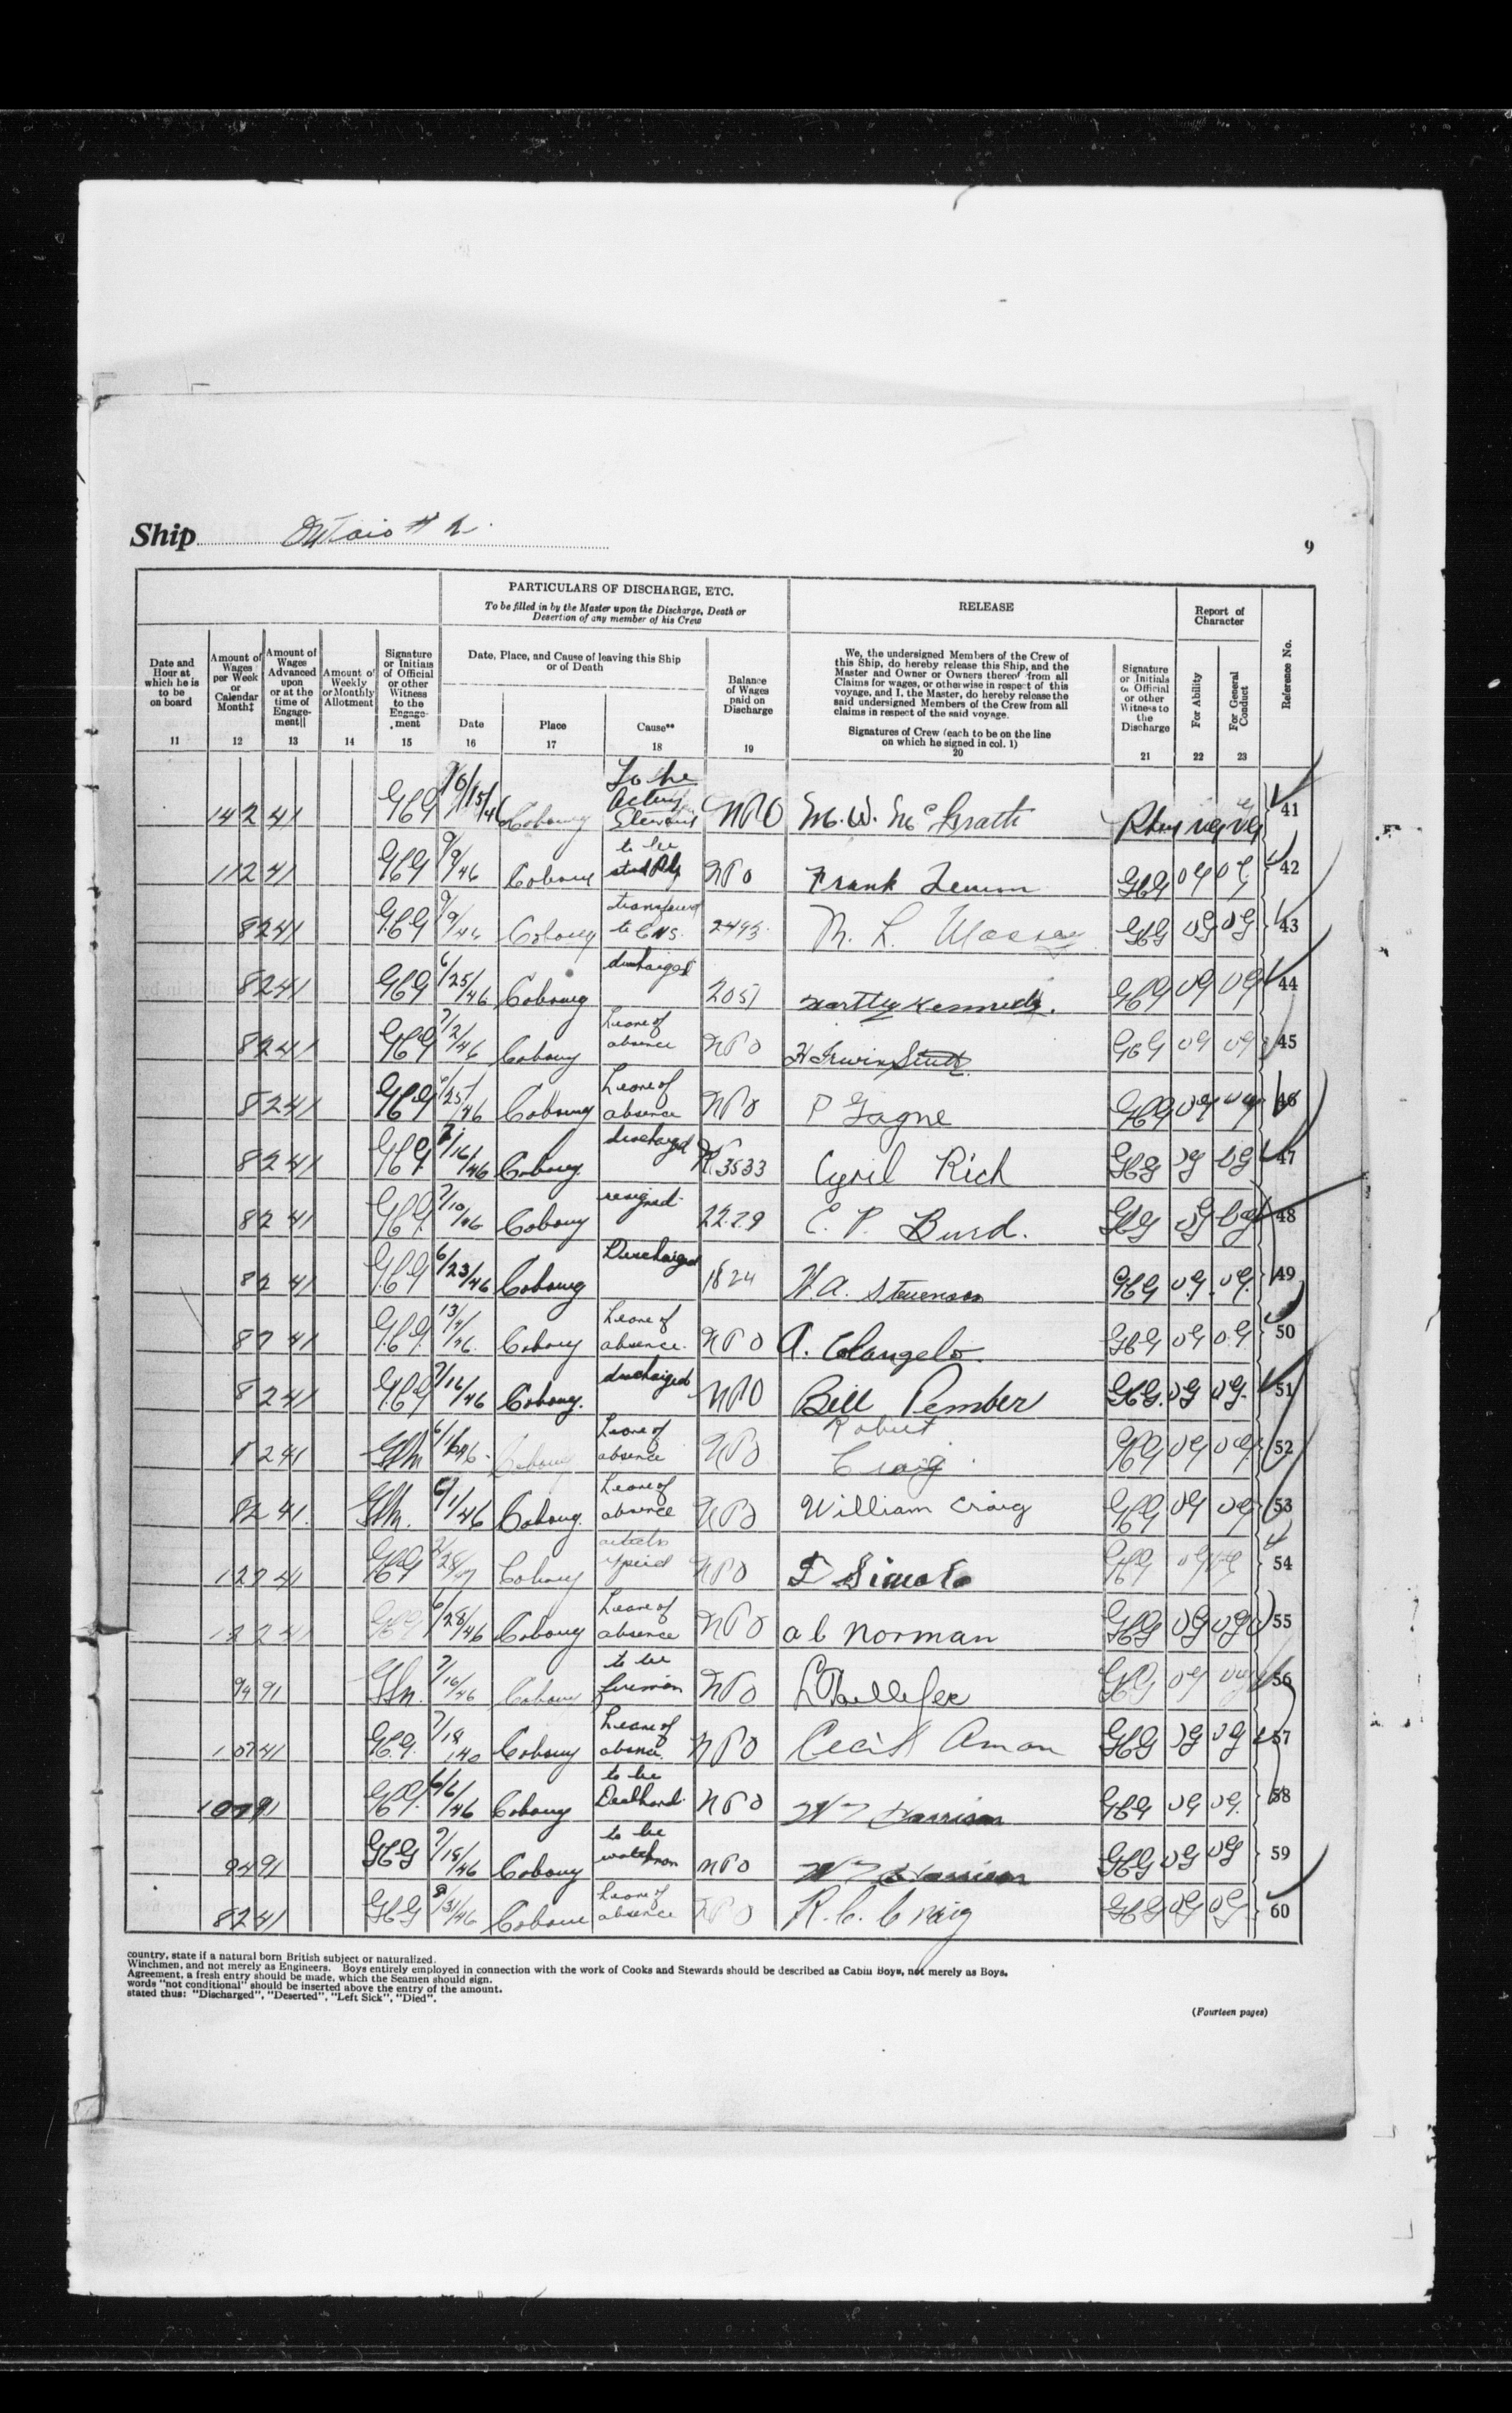 Ship
9
PARTICULARS OF DISCHARGE, ETC.
To be filled in by the Master upon the Discharge, Death or
Desertion of any member of his Crew
RELEASE
Report of
Character
Reference No.
Date and
Hour at
which he is
to be
on board
11
Amount of
Wages
per Week
or
Calendar
Month‡
12
Amount of
Wages
Advanced
upon
or at the
time of
Engage-
ment||
13
Amount of
Weekly
or Monthly
Allotment
14
Signature
or Initials
of Official
or other
Witness
to the
Engage-
ment
15
Date, Place, and Cause of leaving this Ship
or of Death
Date
16
Place
17
Cause**
18
Balance
of Wages
paid on
Discharge
19
We, the undersigned Members of the Crew of
this Ship, do hereby release this Ship, and the
Master and Owner or Owners thereof from all
Claims for wages, or otherwise in respect of this
voyage, and I, the Master, do hereby release the
said undersigned Members of the Crew from all
claims in respect of the said voyage.
Signatures of Crew (each to be on the line
on which he signed in col. 1)
20
Signature
or Initials
or Official
or other
Witness to
the
Discharge
21
For Ability
22
For General
Conduct
23
142 41 GHG Cobourg To be Acting NPO M. W. McGrath VG VG 41
112 41 GHG 7/9/46 Cobourg to be NPO Frank GHG VG VG 42
82 41 GHG 7/9/46 Cobourg to CNS. 2493 GHG VG VG 43
82 41 GHG 6/25/46 Cobourg discharged 2051 Kennedy. GHG VG VG 44
82 41 GHG 7/2/46 Cobourg Leave of absence NPO H Irwin GHG VG VG 45
82 41 GHG Cobourg Leave of absence NPO P Gagne GHG VG VG 46
82 41 GHG 7/16/46 Cobourg discharged 3533 Cyril Rich GHG VG VG 47
82 41 GHG 7/10/46 Cobourg resigned 22.29 E. P. Burd. GHG VG VG 48
82 41 GHG 6/23/46 Cobourg Discharged 1824 H A. Stevenson GHG VG VG 49
82 41 GHG Cobourg Leave of absence NPO A. Colangelo. GHG VG VG 50
82 41 GHG 7/16/46 Cobourg. discharged NPO Bill Pember GHG VG VG 51
82 41 Cobourg Leave of absence NPO Robert Craig GHG VG VG 52
82 41 Cobourg Leave of absence NPO William Craig GHG VG VG 53
127 41 GHG Cobourg NPO GHG VG 54
41 GHG 6/28/46 Cobourg Leave of absence NPO a b Norman GHG VG VG 55
94 91 7/16/46 Cobourg to be fireman NPO GHG VG VG 56
107 41 GHG Cobourg Leave of absence NPO Cecil Aman GHG VG VG 57
107 91 GHG Cobourg to be Deckhand NPO Harrison GHG VG VG 58
94 91 GHG 7/18/46 Cobourg to be watchman NPO Harrison GHG VG VG 59
82 41 GHG Cobourg Leave of absence NPO R. C. Craig GHG VG VG 60
country, state if a natural born British subject or naturalized.
Winchmen, and not merely as Engineers. Boys entirely employed in connection with the work of Cooks and Stewards should be described as Cabin Boys, not merely as Boys.
Agreement, a fresh entry should be made, which the Seamen should sign.
words "not conditional" should be inserted above the entry of the amount.
stated thus: "Discharged", "Deserted", "Left Sick", "Died".
(Fourteen pages)